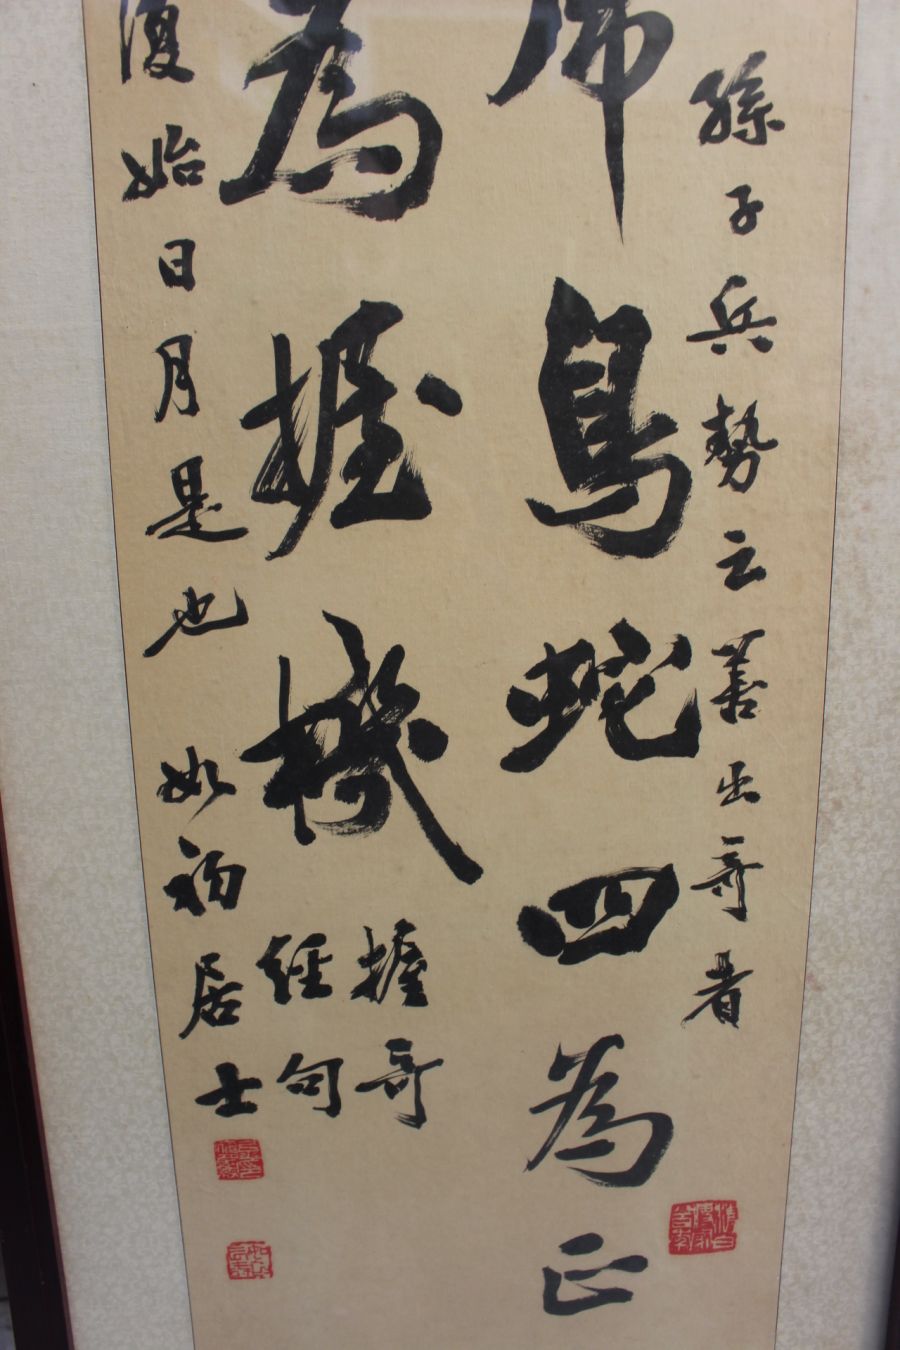 孫子兵勢云善出奇者
虎鳥蛇四為正
為握機
握奇
經句
復始日月是也
如初居士